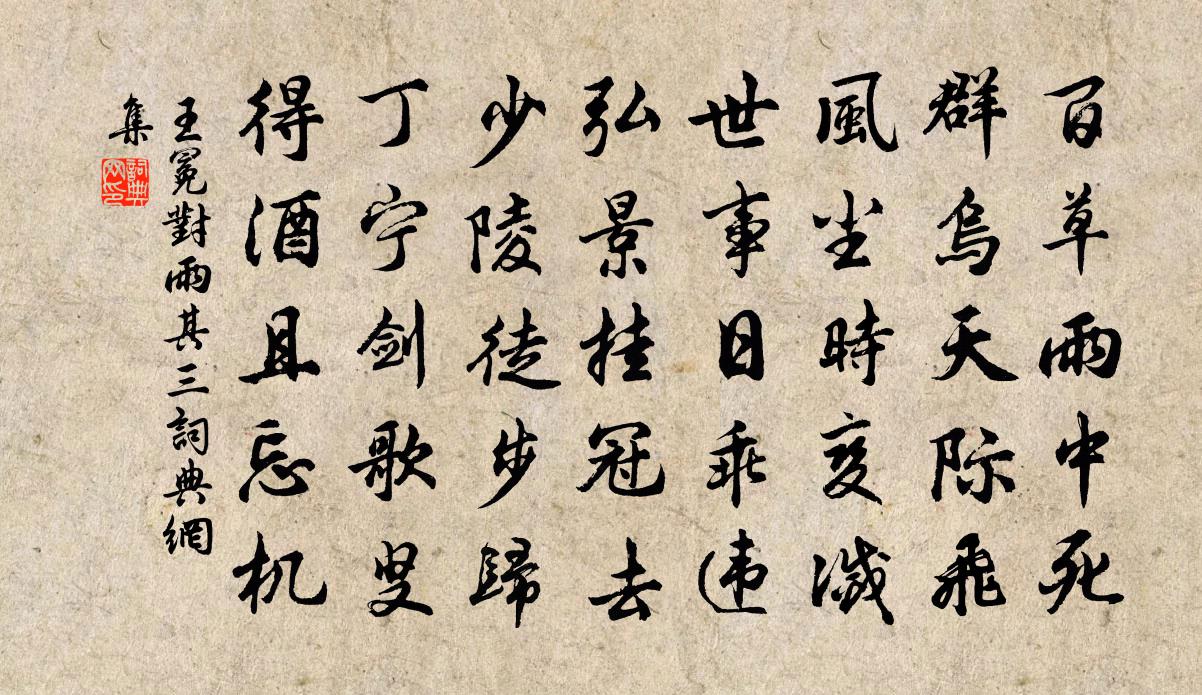 百草雨中死
群烏天际飛
風尘時变滅
世事日乖违
弘景挂冠去
少陵徒步歸
丁宁剑歌叟
得酒且忘机
王冕對雨其三詞典網
集
詞典
网印